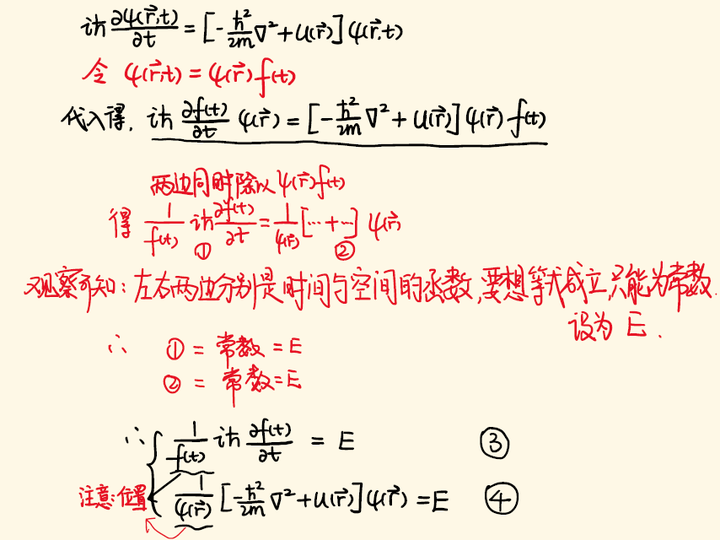 iħ ∂ψ(r⃗,t)/∂t = [-ħ²/2m ∇² + U(r⃗)] ψ(r⃗,t)
令 ψ(r⃗,t) = ψ(r⃗) f(t)
代入得, iħ ∂f(t)/∂t ψ(r⃗) = [-ħ²/2m ∇² + U(r⃗)] ψ(r⃗) f(t)
两边同时除以 ψ(r⃗) f(t)
得 1/f(t) iħ ∂f(t)/∂t = 1/ψ(r⃗) [… + …] ψ(r⃗)
① ②
观察可知: 左右两边分别是时间与空间的函数, 要想等式成立, 只能为常数.
设为 E.
∴ ① = 常数 = E
② = 常数 = E
∴ { 1/f(t) iħ ∂f(t)/∂t = E ③
注意:位置 1/ψ(r⃗) [-ħ²/2m ∇² + U(r⃗)] ψ(r⃗) = E ④